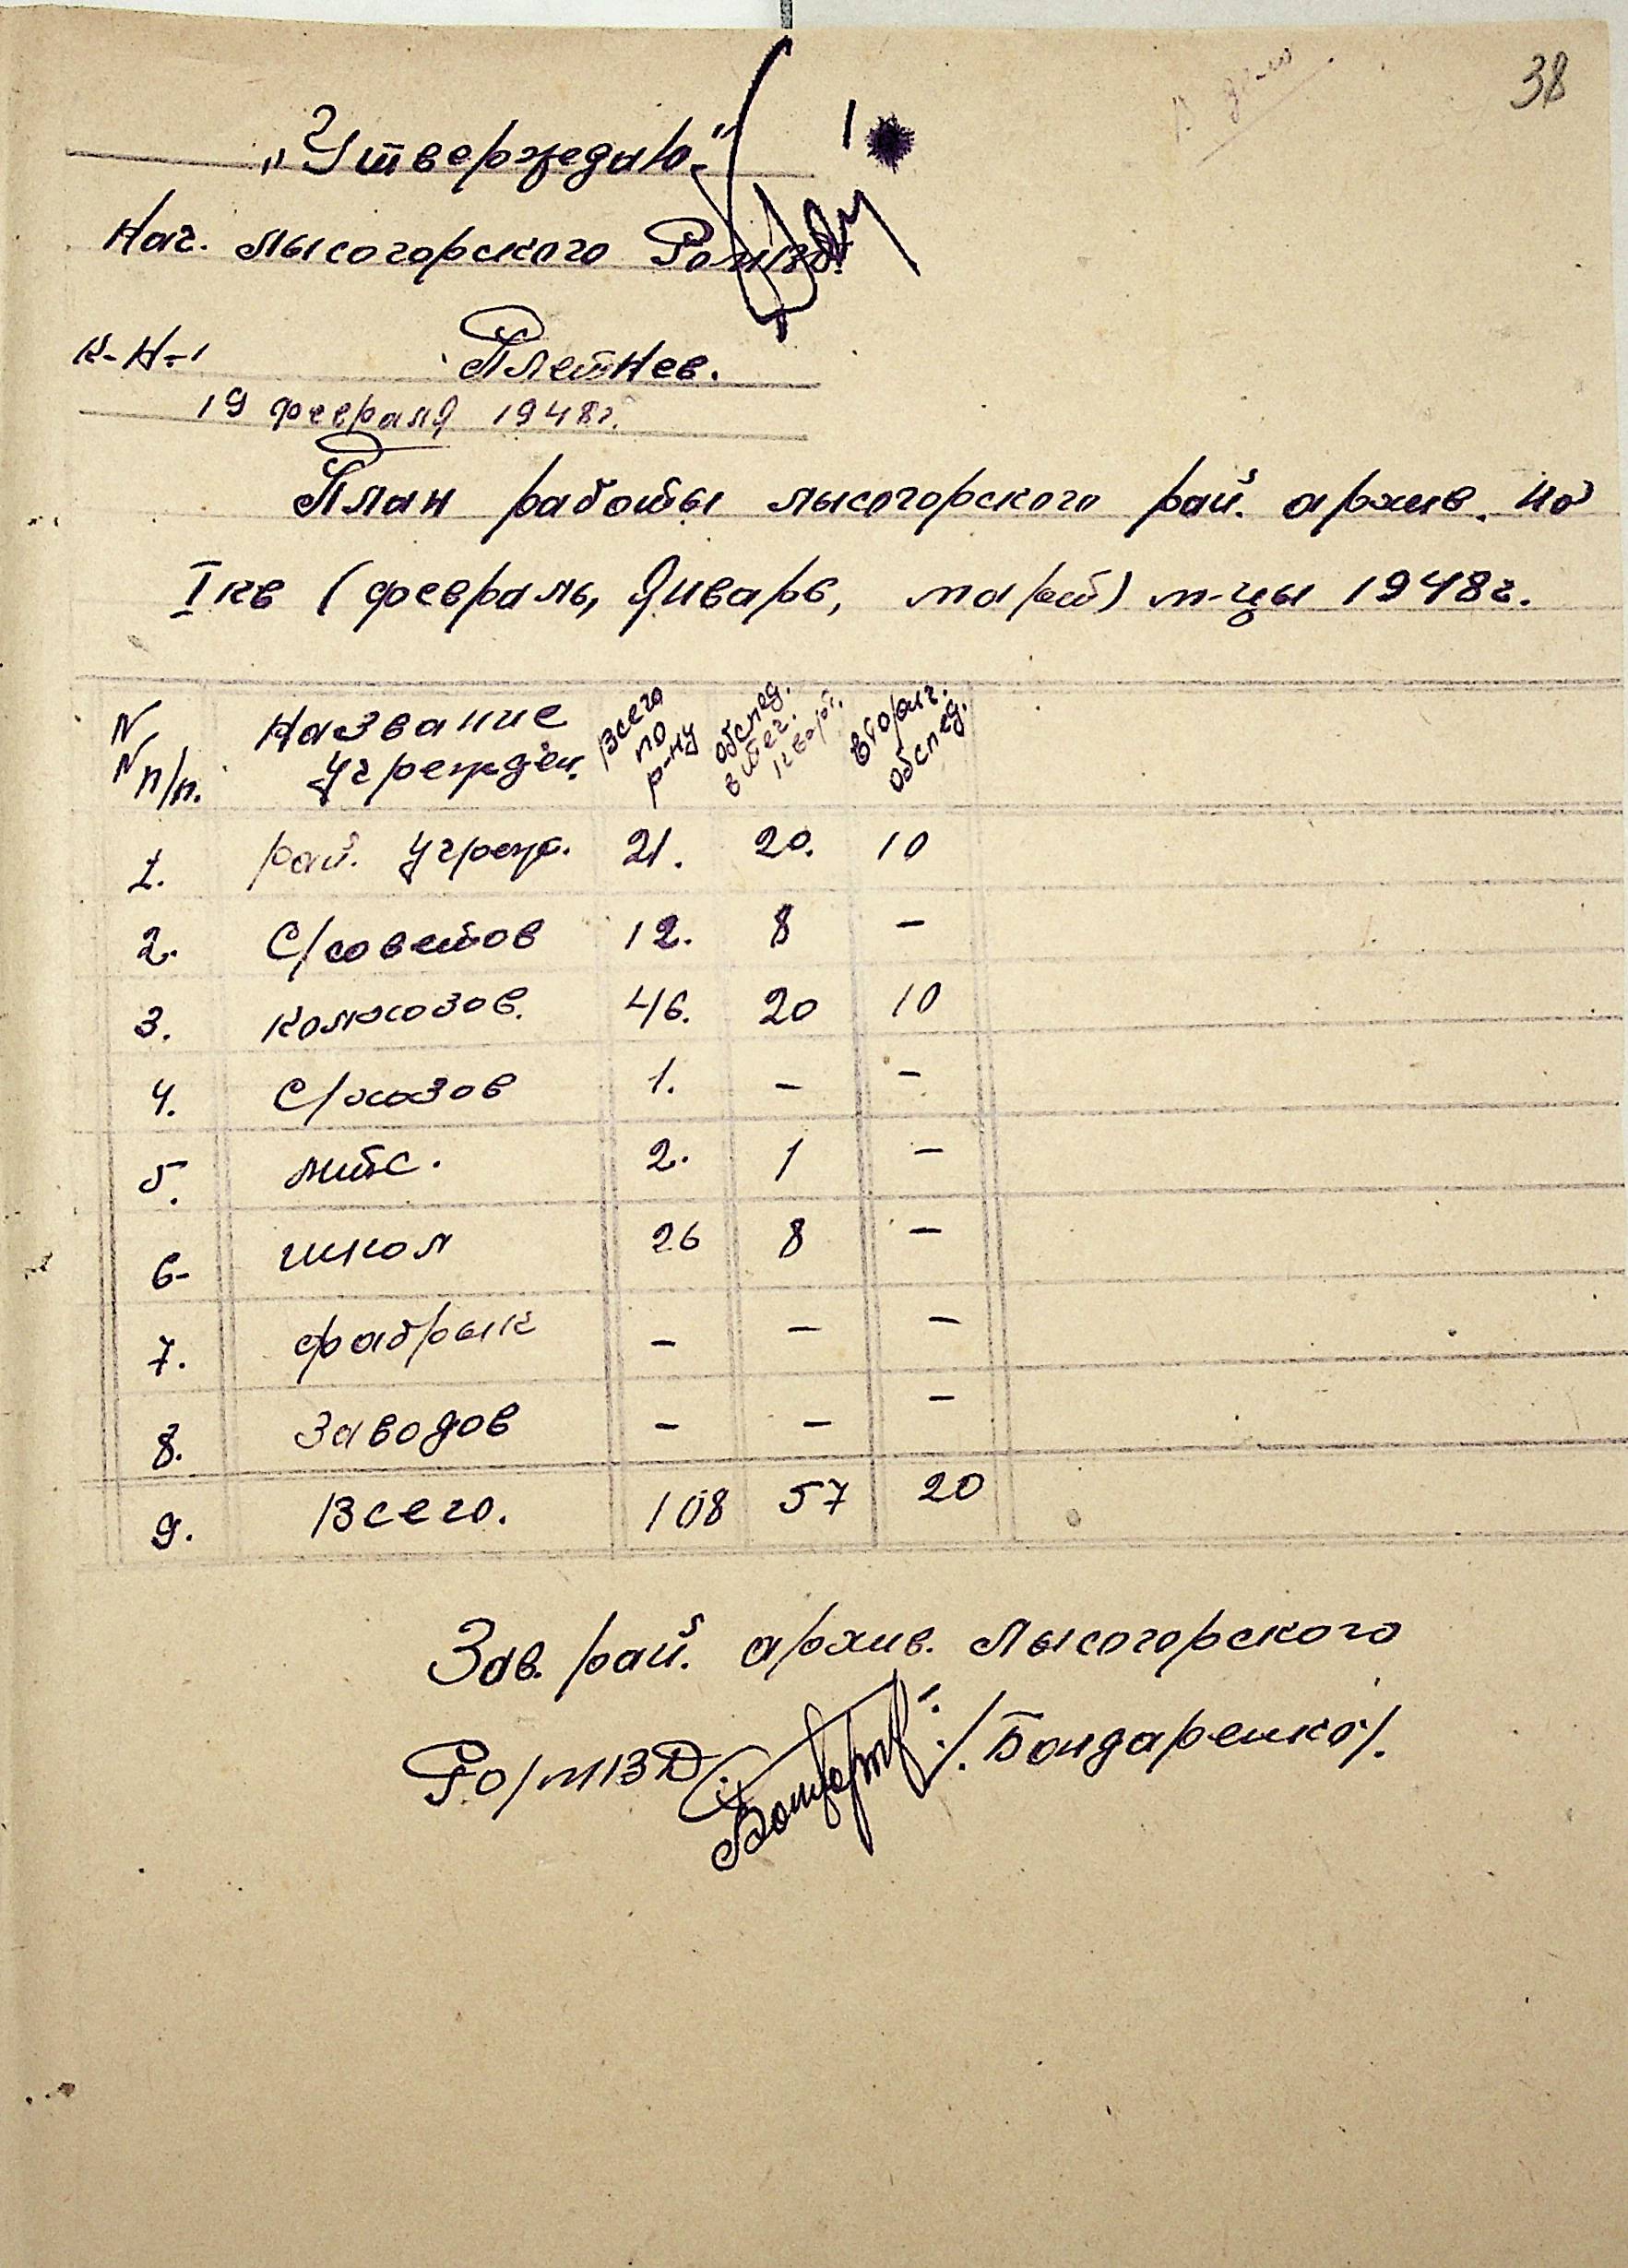 38
„Утверждаю"
Нач. Лысогорского Ро мвд.
К-Н-
Плетнев.
19 февраля 1948г.
План работы лысогорского рай. архив. на
I кв (февраль, Январь, март) м-цы 1948г.
N N п/п. Название учрежден. Всего по р-ну обслед. в теч. кварт. вторич. обслед.
1. рай. учреж. 21. 20. 10
2. С/советов 12. 8 –
3. колхозов. 46. 20 10
4. С/хозов 1. – –
5. мтс. 2. 1 –
6- школ 26 8 –
7. фабрык – – –
8. Заводов – – –
9. Всего. 108 57 20
Зав. рай. архив. Лысогорского
Ро/мвд /Бондаренко/.